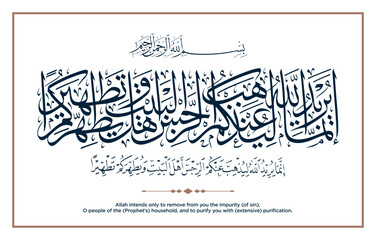 بِسْمِ اللَّهِ الرَّحْمَنِ الرَّحِيمِ
إِنَّمَا يُرِيدُ اللَّهُ لِيُذْهِبَ عَنْكُمُ الرِّجْسَ أَهْلَ الْبَيْتِ وَيُطَهِّرَكُمْ تَطْهِيرًا
إِنَّمَا يُرِيدُ اللَّهُ لِيُذْهِبَ عَنْكُمُ الرِّجْسَ أَهْلَ الْبَيْتِ وَيُطَهِّرَكُمْ تَطْهِيرًا
Allah intends only to remove from you the impurity (of sin),
O people of the (Prophet's) household, and to purify you with (extensive) purification.